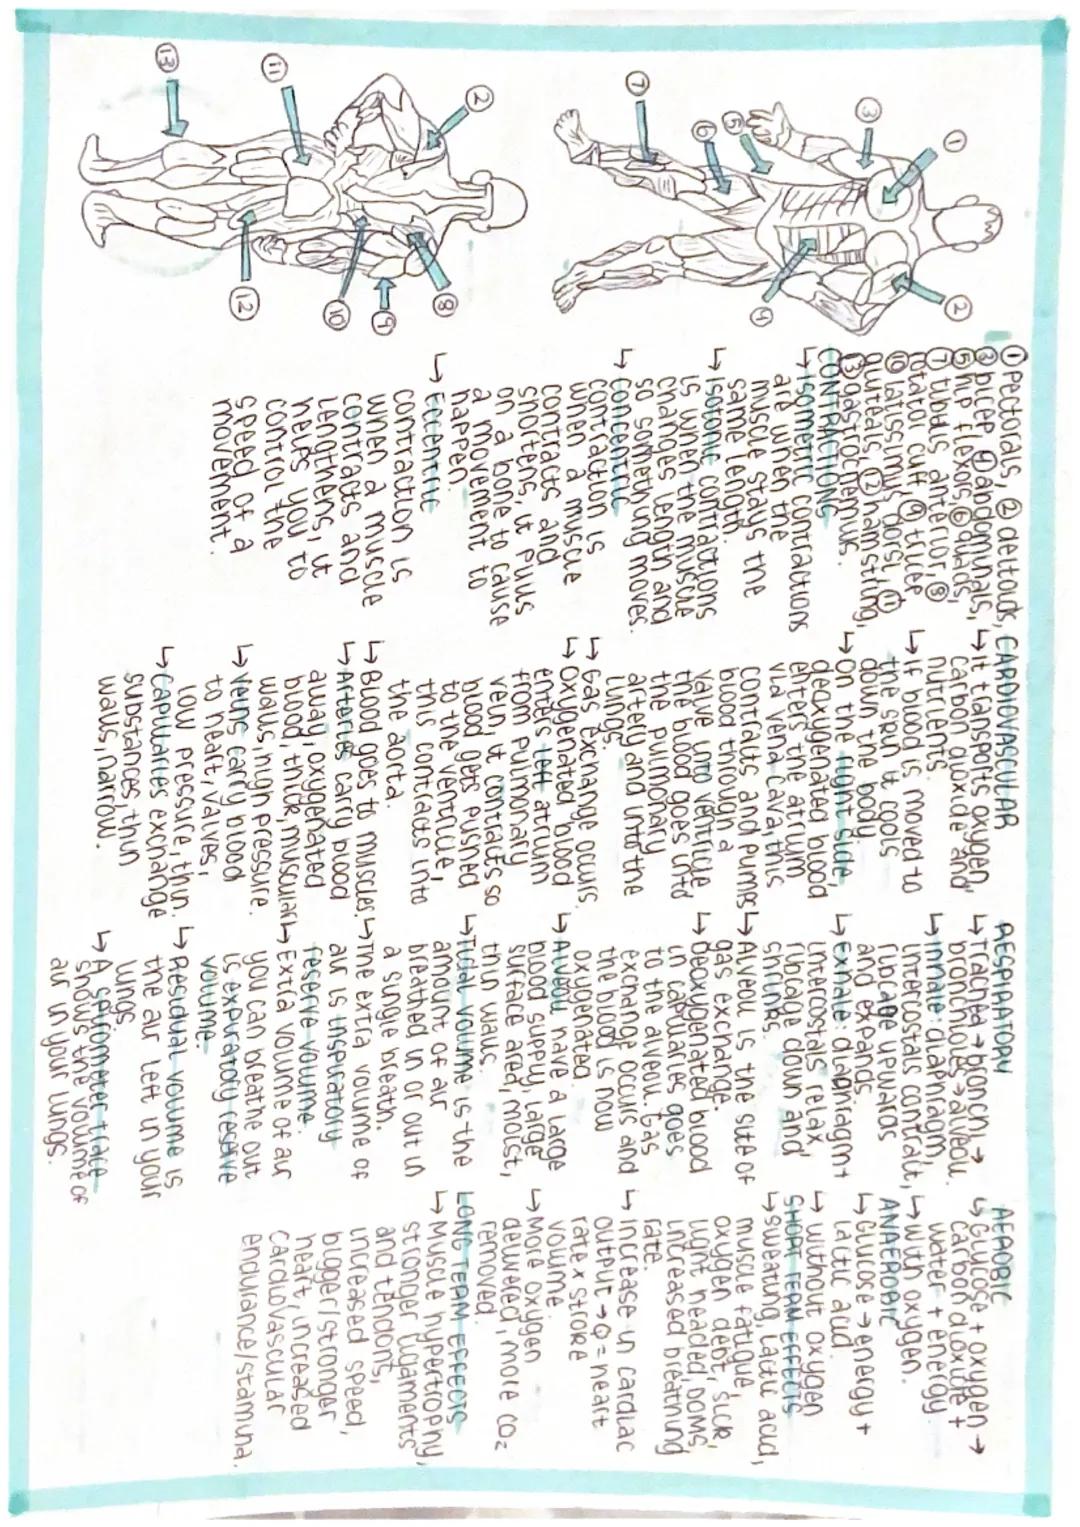 ① Pectorals, ② deltoids,
③ bicep, ④ abdominals,
⑤ hip flexors, ⑥ quads,
⑦ tibialis anterior, ⑧
rotator cuff ⑨ tricep
⑩ latissimus dorsi, ⑪
gluteals, ⑫ hamstring,
⑬ gastrocnemius.
CONTRACTIONS
↳ Isometric contractions
are when the
muscle stays the
same length.
↳ Isotonic contractions
is when the muscle
changes length and
so something moves.
↳ Concentric
contraction is
when a muscle
contracts and
shortens, it pulls
on a bone to cause
a movement to
happen
↳ Eccentric
contraction is
when a muscle
contracts and
lengthens, it
helps you to
control the
speed of a
movement.
CARDIOVASCULAR
↳ It transports oxygen,
carbon dioxide and
nutrients.
↳ If blood is moved to
the skin it cools
down the body.
↳ On the right side,
deoxygenated blood
enters the atrium
via vena cava, this
contracts and pumps
blood through a
valve into ventricle,
the blood goes into
the pulmonary
artery and into the
lungs.
↳ Gas exchange occurs.
↳ Oxygenated blood
enters left atrium
from pulmonary
vein, it contracts so
blood gets pushed
to the ventricle,
this contracts into
the aorta.
↳ Blood goes to muscles.
↳ Arteries carry blood
away, oxygenated
blood, thick, muscular
walls, high pressure.
↳ Veins carry blood
to heart, valves,
low pressure, thin.
↳ Capillaries exchange
substances, thin
walls, narrow.
RESPIRATORY
↳ Trachea → bronchi →
bronchioles → alveoli.
↳ Inhale: diaphragm,
intercostals contract,
ribcage upwards
and expands.
↳ Exhale: diaphragm +
intercostals relax,
ribcage down and
shrinks.
↳ Alveoli is the site of
gas exchange.
↳ Deoxygenated blood
in capillaries goes
to the alveoli. Gas
exchange occurs and
the blood is now
oxygenated.
↳ Alveoli have a large
blood supply, large
surface area, moist,
thin walls.
↳ Tidal volume is the
amount of air
breathed in or out in
a single breath.
↳ The extra volume of
air is inspiratory
reserve volume.
↳ Extra volume of air
you can breathe out
is expiratory reserve
volume.
↳ Residual volume is
the air left in your
lungs.
↳ A spirometer trace
shows the volume of
air in your lungs.
AEROBIC
↳ Glucose + oxygen →
carbon dioxide +
water + energy
↳ with oxygen.
ANAEROBIC
↳ Glucose → energy +
lactic acid
↳ without oxygen
SHORT TERM EFFECTS
↳ sweating, lactic acid,
muscle fatigue,
oxygen debt, sick,
light headed, DOMS,
increased breathing
rate.
↳ Increase in cardiac
output → Q = heart
rate x stroke
volume.
↳ More oxygen
delivered, more CO₂
removed.
LONG TERM EFFECTS
↳ Muscle hypertrophy,
stronger ligaments
and tendons,
increased speed,
bigger/stronger
heart, increased
cardiovascular
endurance/stamina.
①
②
③
④
⑤
⑥
⑦
②
⑧
⑨
⑩
⑪
⑫
⑬